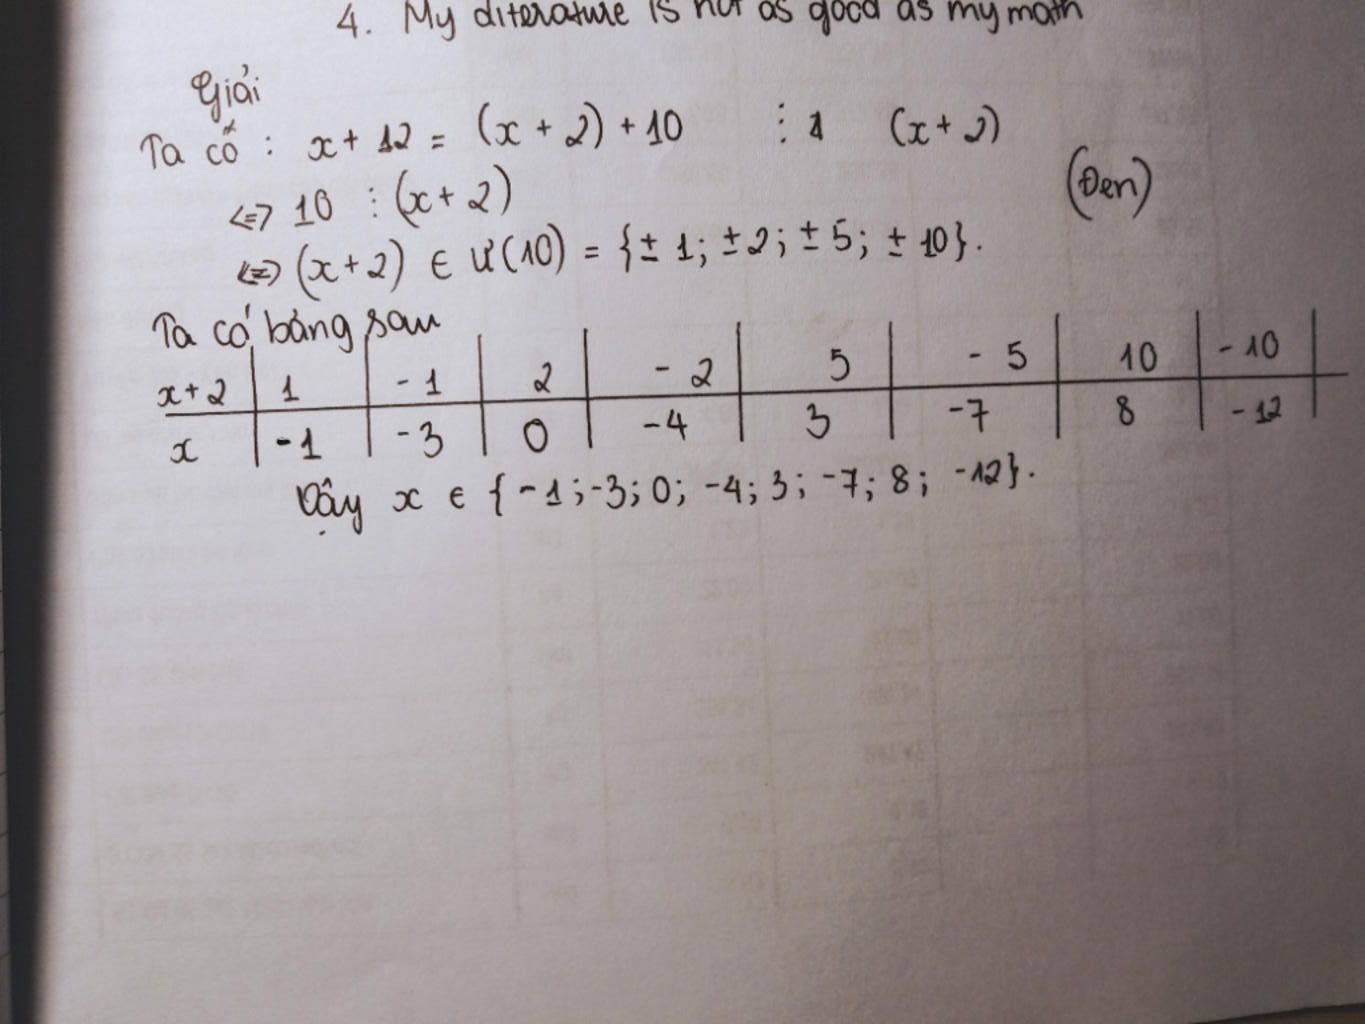 4. My diterature is not as good as my math
Giải
Ta có : x + 12 = (x + 2) + 10 ⋮ (x + 2)
(Đen)
<=> 10 ⋮ (x + 2)
<=> (x + 2) ∈ Ư(10) = {± 1; ± 2; ± 5; ± 10}.
Ta có bảng sau
x+2 | 1 | -1 | 2 | -2 | 5 | -5 | 10 | -10
x | -1 | -3 | 0 | -4 | 3 | -7 | 8 | -12
Vậy x ∈ {-1; -3; 0; -4; 3; -7; 8; -12}.